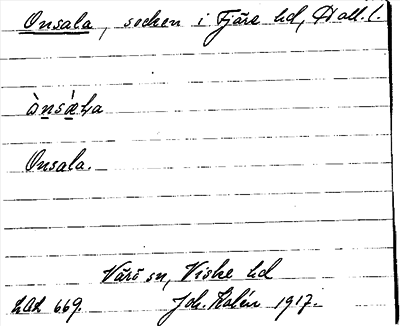 Onsala, socken i Fjäre hd, Hall. l.
Onsala.
Värö sn, Viske hd
LAL 669. Joh. Kalén 1917.